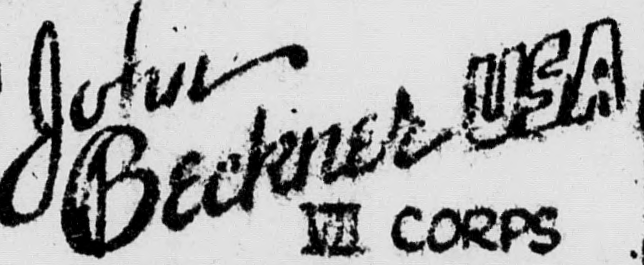 John
Beckner USA
VII CORPS